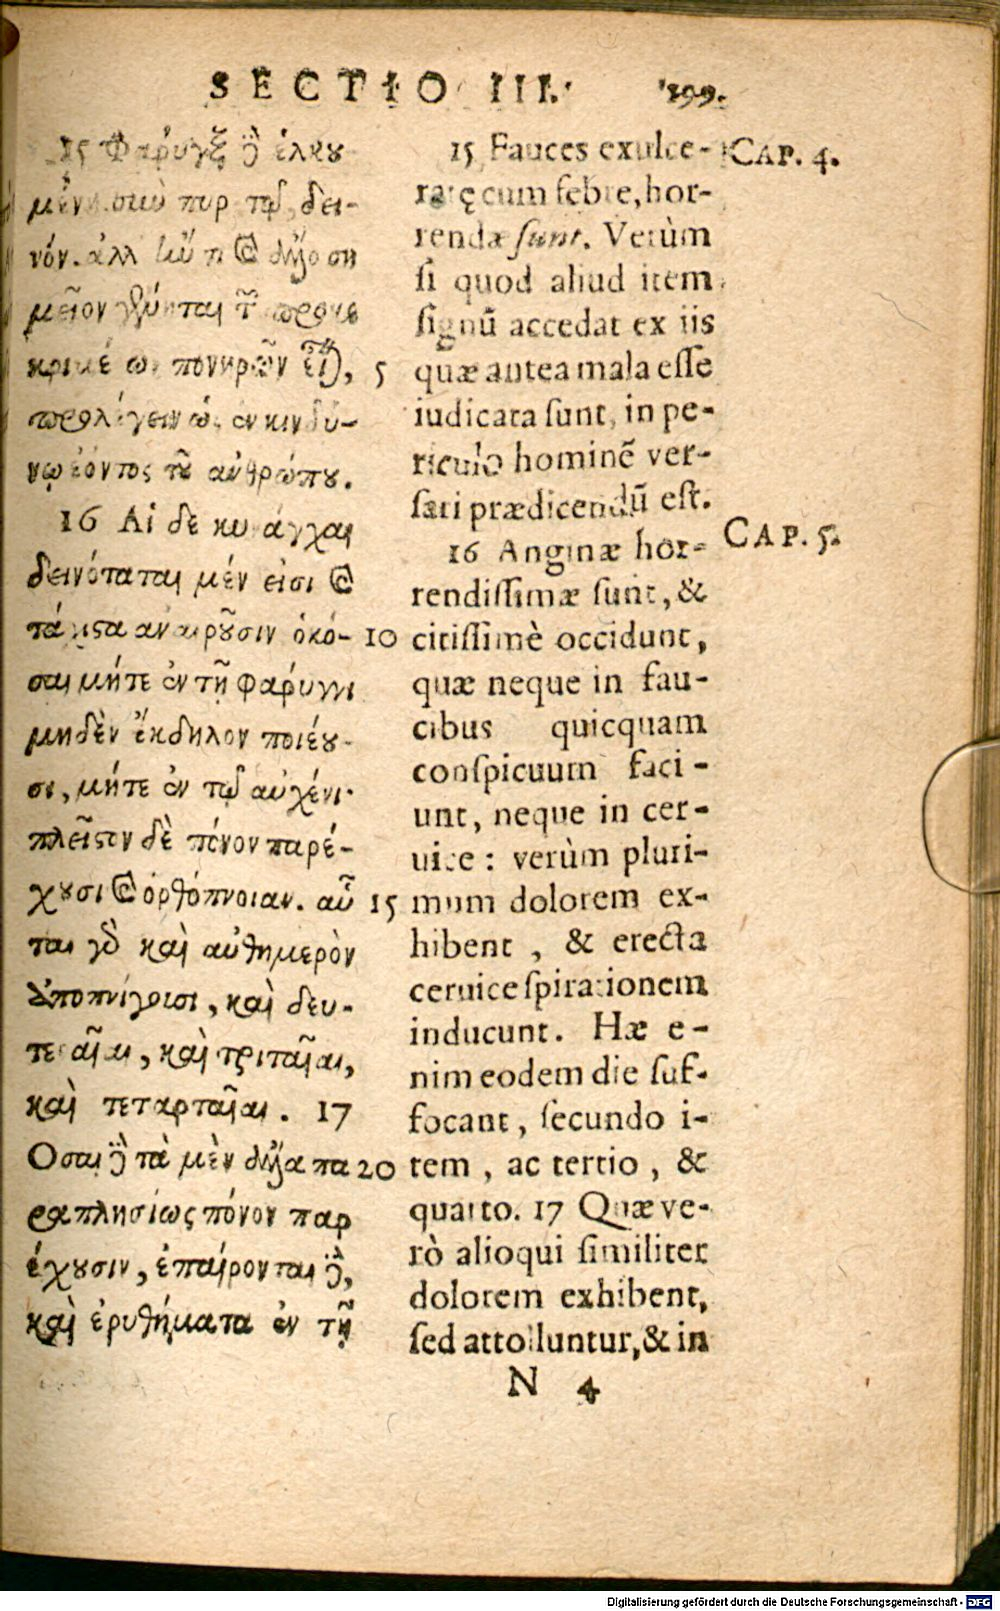 SECTIO III. 199.
15 Φάρυγξ δὲ ἑλκου
μένη σὺν πυρετῷ, δει-
νόν. ἀλλ' ἤν τι καὶ ἄλλο ση
μεῖον
κρι πονηρῶν
προλέγειν ὡς ἐν κινδύ-
νῳ ἐόντος τοῦ ἀνθρώπου.
16 Αἱ δὲ κυνάγχαι
δεινόταται μέν εἰσι καὶ
τάχιστα ἀναιροῦσιν ὁκό-
σαι μήτε ἐν τῇ φάρυγγι
μηδὲν ἔκδηλον ποιέου-
σι, μήτε ἐν τῷ αὐχένι·
πλεῖστον δὲ πόνον παρέ-
χουσι καὶ ὀρθόπνοιαν. αὗ
ται γὰρ καὶ αὐθημερὸν
ἀποπνίγουσι, καὶ δευ-
τεραῖαι, καὶ τριταῖαι,
καὶ τεταρταῖαι. 17
Οσαι δὲ τὰ μὲν ἄλλα πα
ραπλησίως πόνον παρ
έχουσιν, ἐπαίρονται δὲ,
καὶ ἐρυθήματα ἐν τῇ
5
10
15
20
15 Fauces exulce-
ratę cum febre, hor-
rendæ sunt. Verùm
si quod aliud item
signū accedat ex iis
quæ antea mala esse
iudicata sunt, in pe-
riculo hominē ver-
sari prædicendū est.
16 Anginæ hor-
rendissimæ sunt, &
citissimè occidunt,
quæ neque in fau-
cibus quicquam
conspicuum faci-
unt, neque in cer-
uice: verùm pluri-
mum dolorem ex-
hibent, & erecta
ceruice spirationem
inducunt. Hæ e-
nim eodem die suf-
focant, secundo i-
tem, ac tertio, &
quarto. 17 Quæ ve-
rò alioqui similiter
dolorem exhibent,
sed attolluntur, & in
CAP. 4.
CAP. 5.
N 4
Digitalisierung gefördert durch die Deutsche Forschungsgemeinschaft - DFG